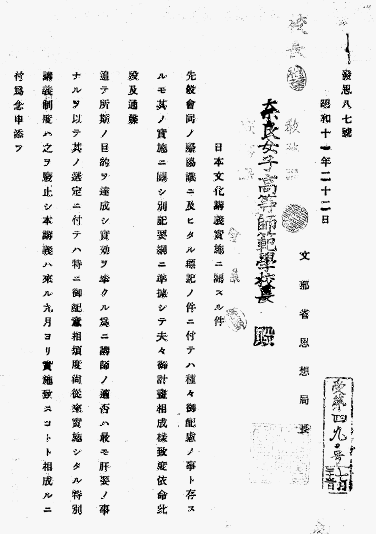 發思八七號
昭和十一年 二十二日
文部省思想局長
奈良女子高等師範學校長 殿
日本文化講義實施ニ關スル件
先般會同ノ際協議ニ及ヒタル標記ノ件ニ付テハ種々御配慮ノ事ト存ス
ルモ其ノ實施ニ關シ別記要綱ニ準據シテ夫々御計畫相成樣致度依命此
段及通牒
追テ所期ノ目的ヲ達成シ實効ヲ擧クル爲ニ講師ノ適否ハ最モ肝要ノ事
ナルヲ以テ其ノ選定ニ付テハ特ニ御配意相煩度尚從來實施シタル特別
講義制度ハ之ヲ廢止シ本講義ハ來ル九月ヨリ實施致スコトト相成ルニ
付爲念申添フ